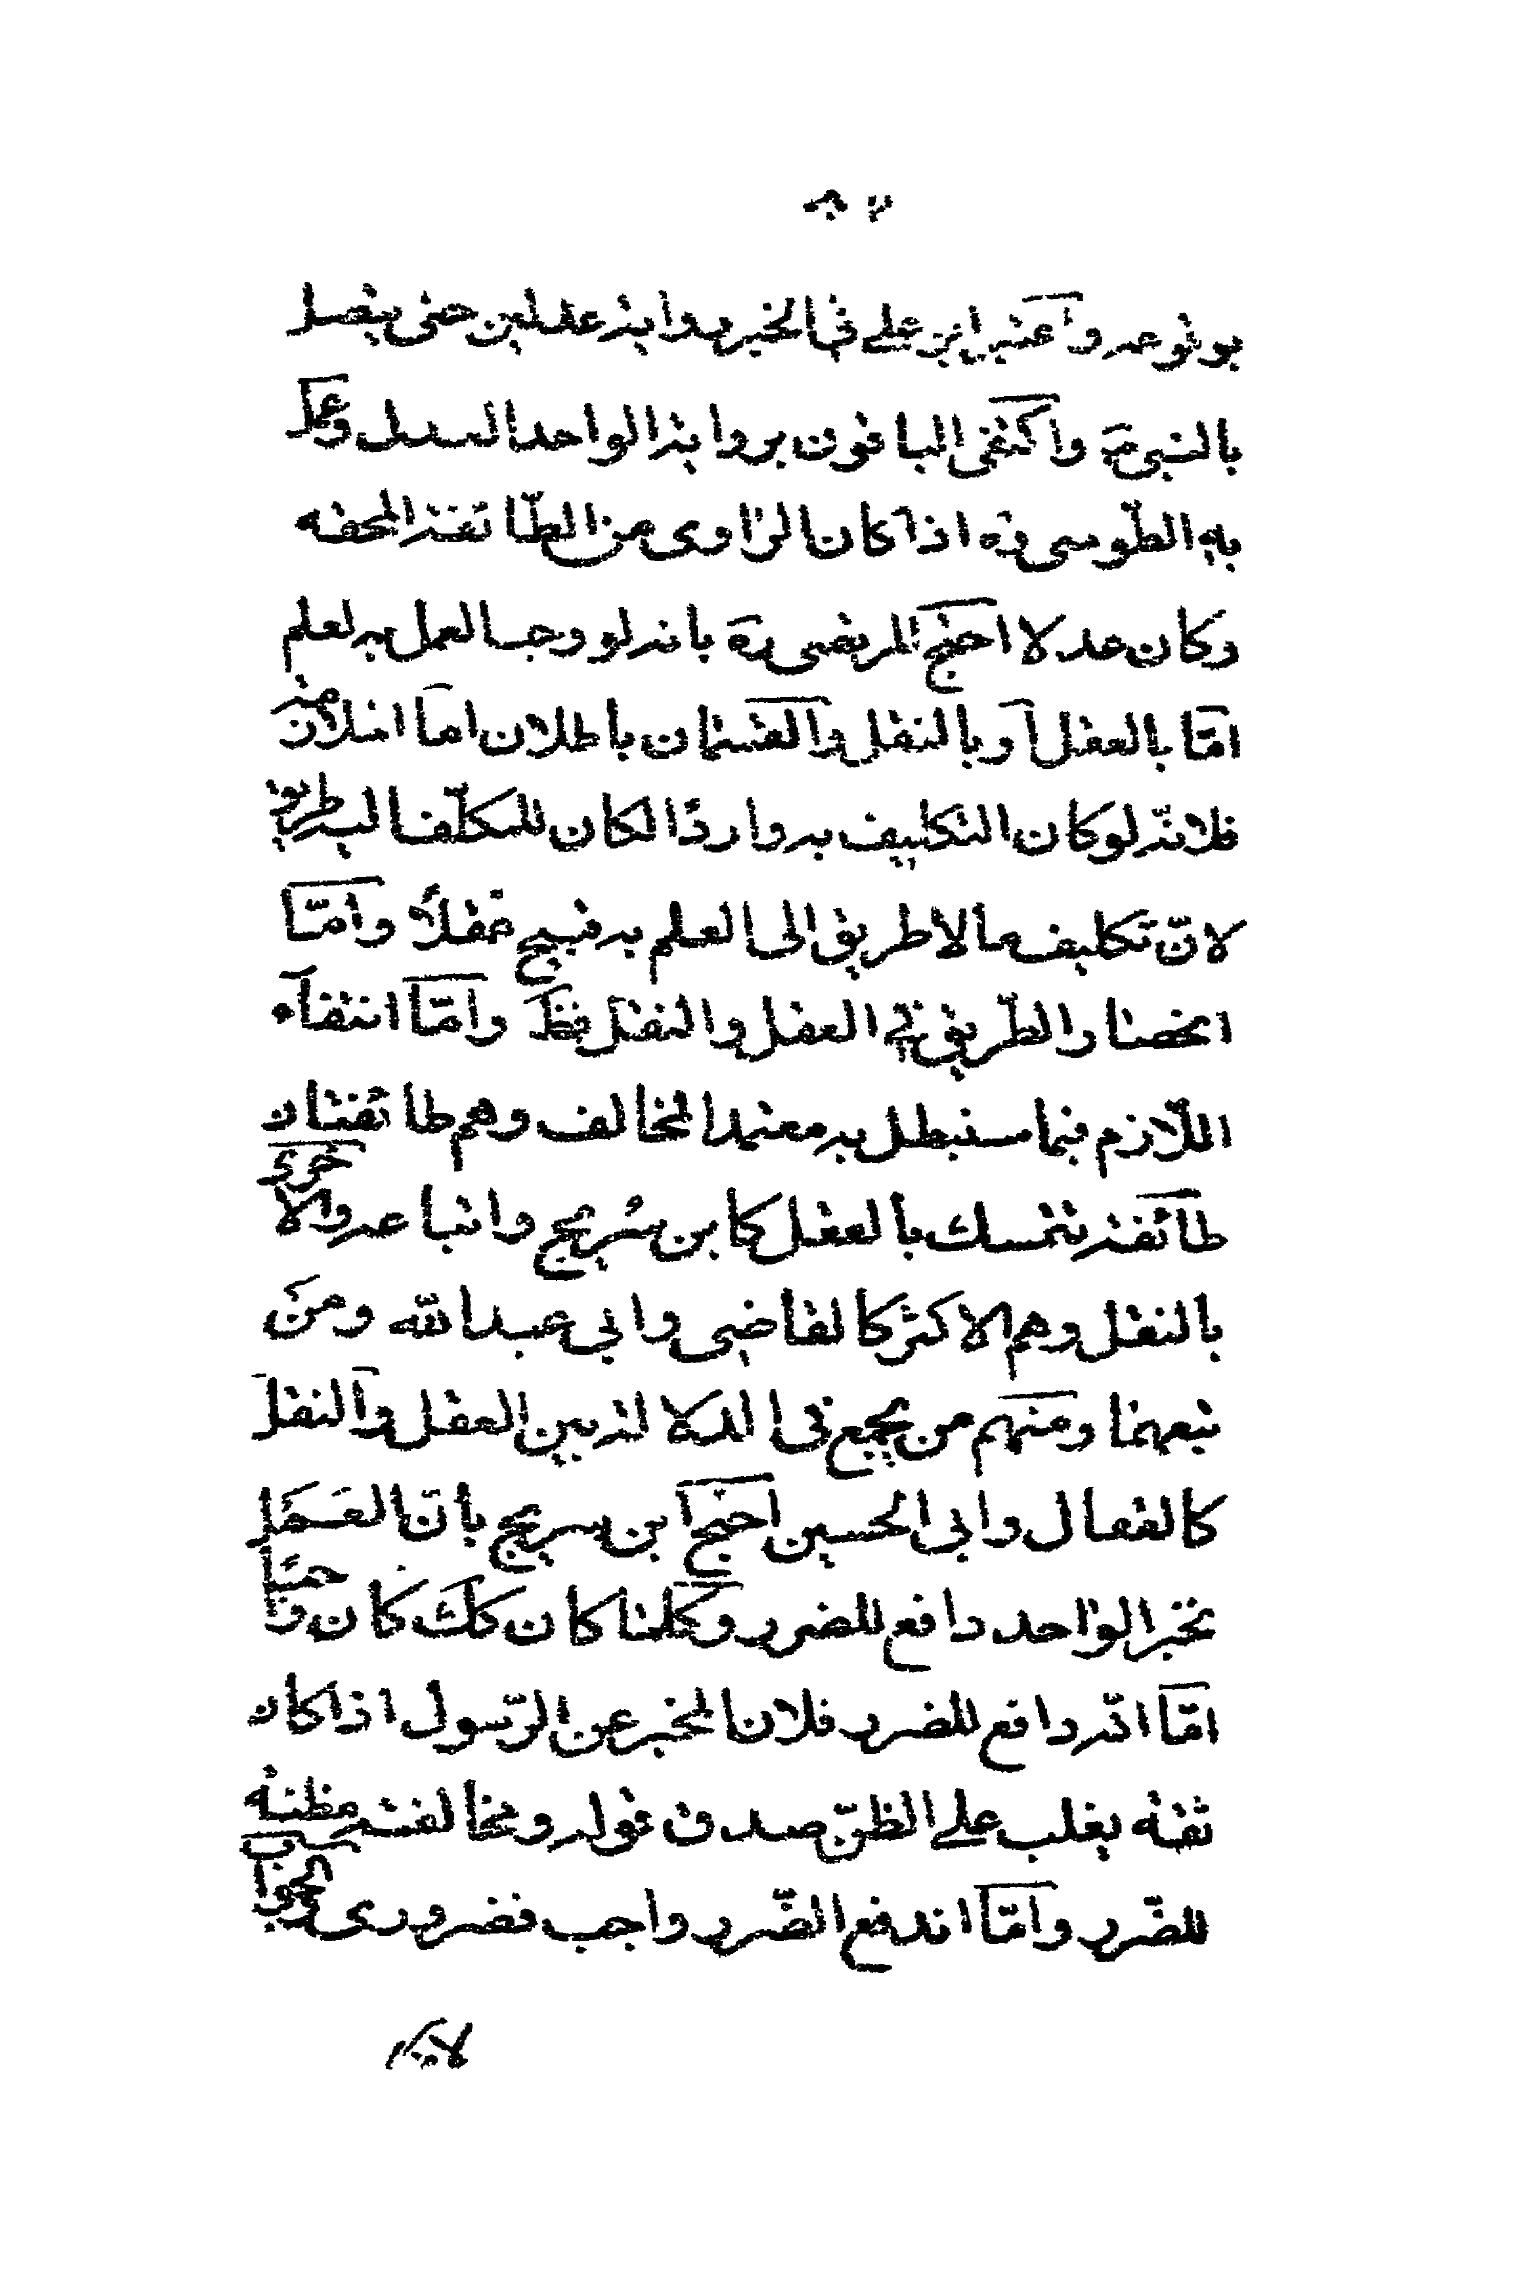 بوقوعه واعتبر ابو علي في الخبر رواية عدلين حتى يتصل
بالنبي ص واكتفى الباقون برواية الواحد العدل وعمل
به الطوسي ره اذا كان الراوى من الطائفة المحقه
وكان عدلا احتج المرتضى ره بانه لو وجب العمل به لعلم
امّا بالعقل او بالنقل والقسمان باطلان اما الملازمة
فلانّه لو كان التكليف به واردًا لكان للمكلّف اليه طريق
لانّ تكليف ما لا طريق الى العلم به قبيح عقلاً وامّا
انحصار الطّريق في العقل والنقل فظ وامّا انتفاء
اللّازم فبما سنبطل به معتمد المخالف وهم طائفتان
طائفة تتمسك بالعقل كابن سريج واتباعه والاخرى
بالنقل وهم الاكثر كالقاضى وابى عبد الله ومن
تبعهما ومنهم من يجمع في الدلالة بين العقل والنقل
كالقفال وابى الحسين احتج ابن سريج بانّ العمل
بخبر الواحد دافع للضرر وكلما كان كك كان واجبًا
امّا انّه دافع للضرر فلان المخبر عن الرّسول اذا كان
ثقة يغلب على الظنّ صدق قوله ومخالفته مظنة
للضّرر وامّا ان دفع الضّرر واجب فضرورى الجواب
لا يكم